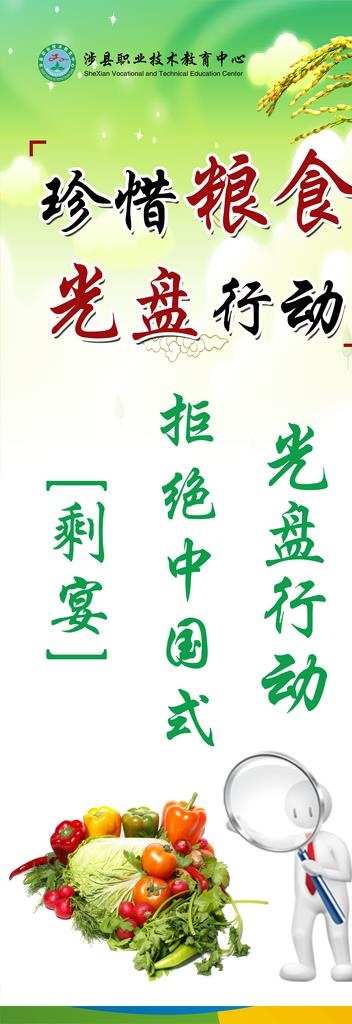 涉县职业技术教育中心
SheXian Vocational and Technical Education Center
珍惜粮食
光盘行动
光盘行动
拒绝中国式
[剩宴]